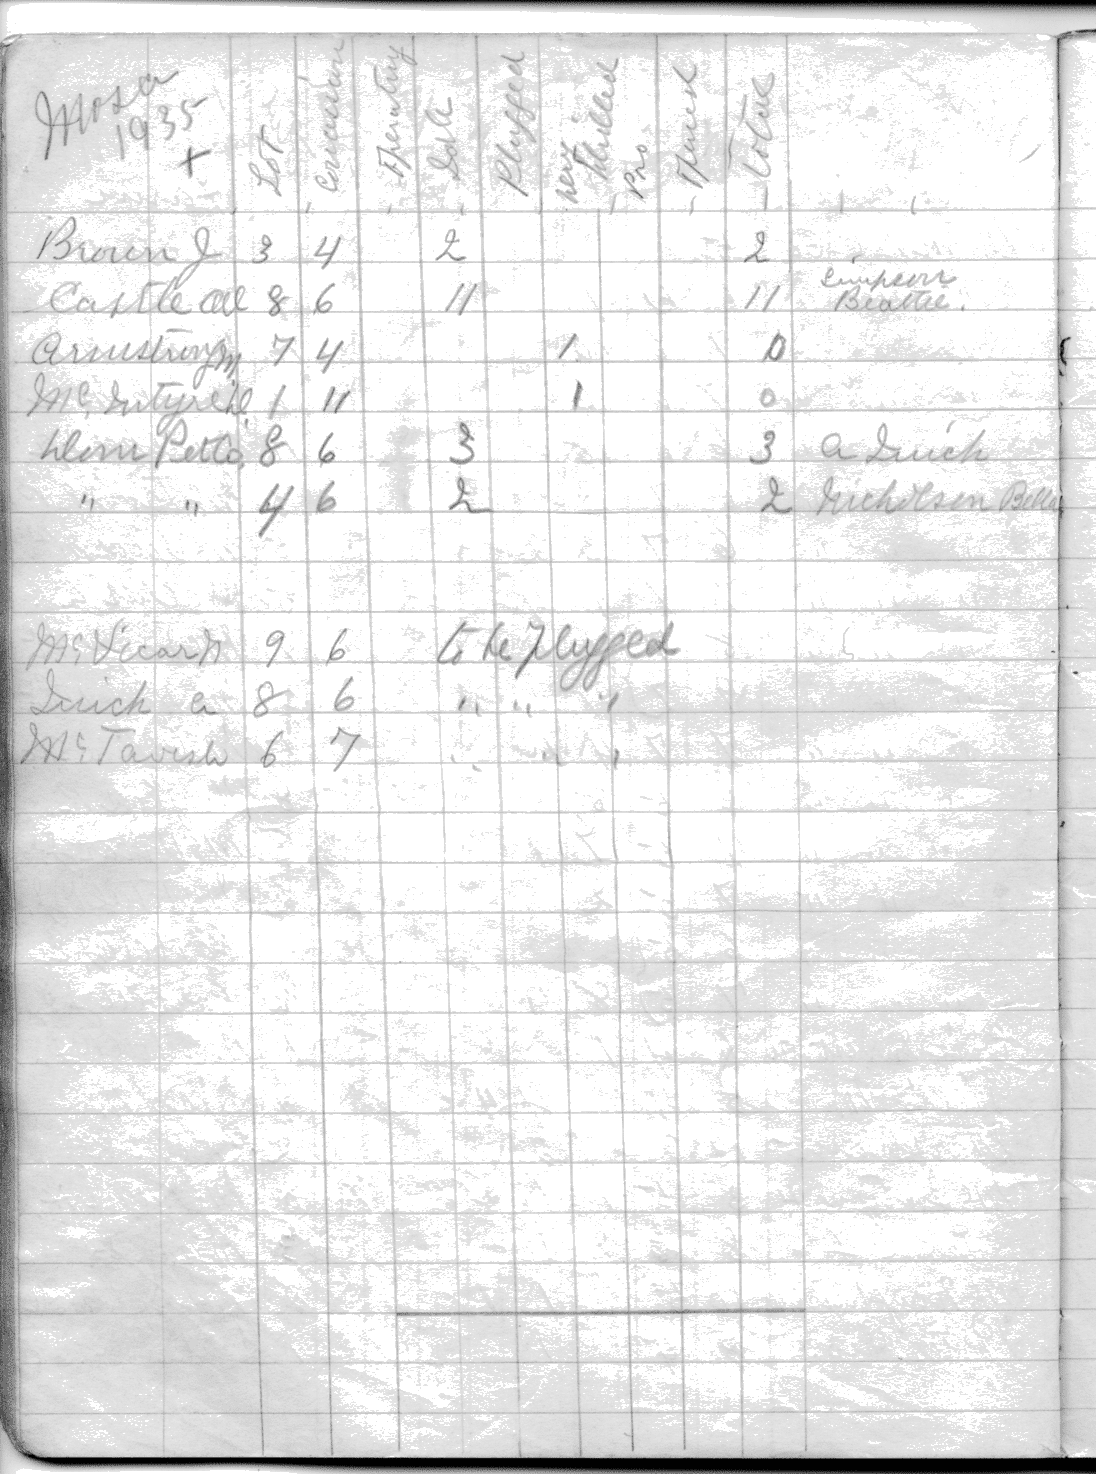 Mosa
1935
+
Lot Concession Operating Idle Plugged New Drilled Pro Opened Total
Brown J 3 4 2 2
Castle Oil 8 6 11 11 Simpson Beattie.
Armstrong 7 4 1 0
McIntyre 1 11 1 0
Dom Petto, 8 6 3 3 A Quick
" " 4 6 2 2 Nicholson
McVicar N 9 6 to be plugged
Quick A 8 6 " " "
McTavish 6 7 " " "